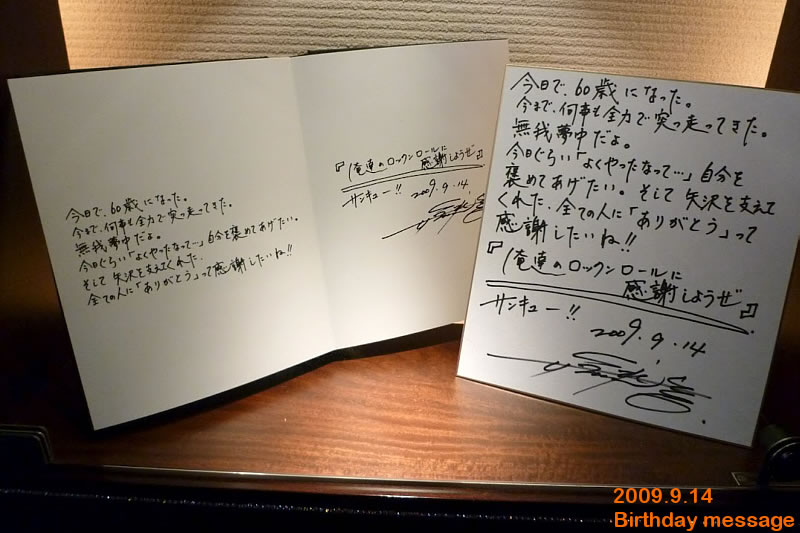 今日で、60歳になった。
今まで、何事も全力で突っ走ってきた。
無我夢中だよ。
今日ぐらい「よくやったなって…」自分を褒めてあげたい。
そして 矢沢を支えてくれた、
全ての人に「ありがとう」って感謝したいね!!
『俺達のロックンロールに
感謝しようぜ』
サンキュー!! 2009.9.14
今日で、60歳になった。
今まで、何事も全力で突っ走ってきた。
無我夢中だよ。
今日ぐらい「よくやったなって…」自分を
褒めてあげたい。そして 矢沢を支えて
くれた、全ての人に「ありがとう」って
感謝したいね!!
『俺達のロックンロールに
感謝しようぜ』
サンキュー!!
2009.9.14
2009.9.14
Birthday message